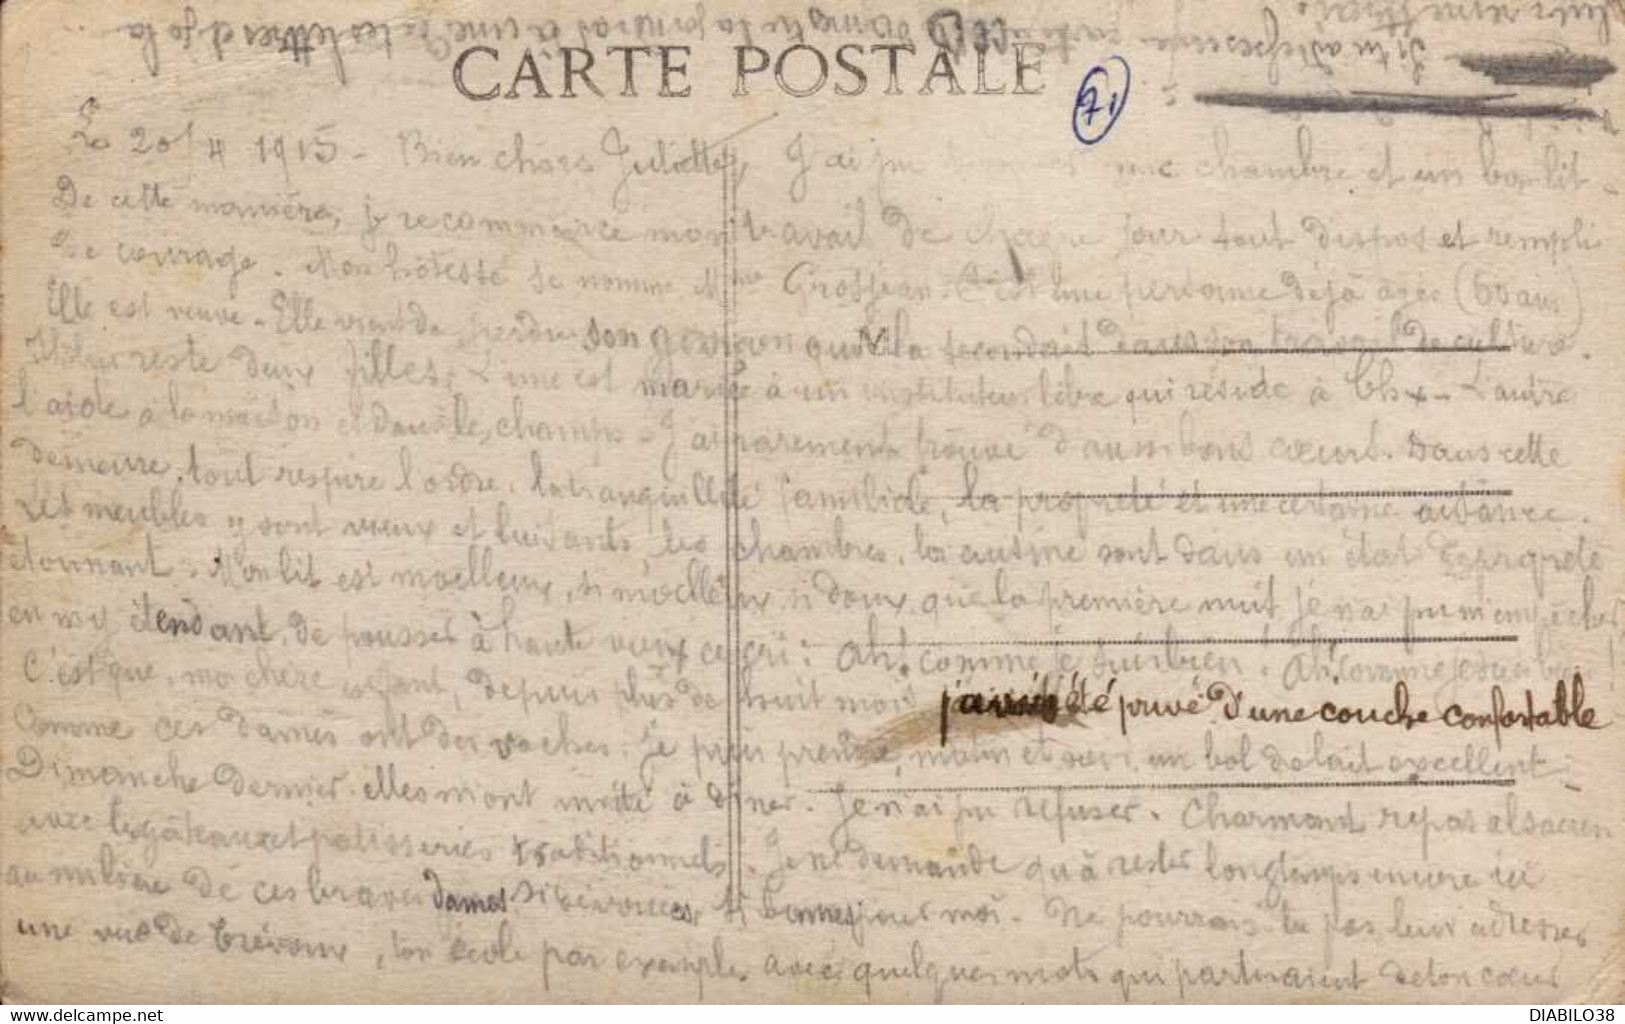 CARTE POSTALE
71
Le 20/4 1915 - Bien chère Juliette, J'ai pu une chambre et un bon lit -
De cette manière, je recommence mon travail de chaque jour tout dispos et rempli
de courage. Mon hôtesse se nomme Mme Grosjean. C'est une personne déjà agée (60 ans)
Elle est veuve - Elle vient de perdre son garçon qui la secondait dans son travail de culture.
Il lui reste deux filles. L'une est mariée à un instituteur libre qui réside à Chx - L'autre
l'aide à la maison et dans les champs - J'ai rarement trouvé d'aussi bons cœurs. Dans cette
demeure, tout respire l'ordre, la tranquillité familiale, la propreté et une certaine aisance.
Les meubles y sont vieux et luisants, les chambres, la cuisine sont dans un état de propreté
étonnant. Mon lit est moelleux, si moelleux, si doux, que la première nuit je n'ai pu m'empêcher,
en m'y étendant, de pousser à haute voix ce cri : Ah! comme je suis bien! Ah! comme je suis bien!
C'est que, ma chère enfant, depuis plus de huit mois j'avais été privé d'une couche confortable
Comme ces dames ont des vaches, je puis prendre, matin et soir, un bol de lait excellent.
Dimanche dernier, elles m'ont invité à dîner. Je n'ai pu refuser. Charmant repas alsacien
avec les gâteaux et patisseries traditionnels. Je ne demande qu'à rester longtemps encore ici
au milieu de ces braves dames si dévouées, si bonnes pour moi. Ne pourrais-tu pas leur adresser
une vue de Trévoux, ton école par exemple, avec quelques mots qui partiraient de ton cœur
Si tu adresses une carte à ces dames tu la joindras à une de tes lettres et je la
leur remettrai.
DIABILO38